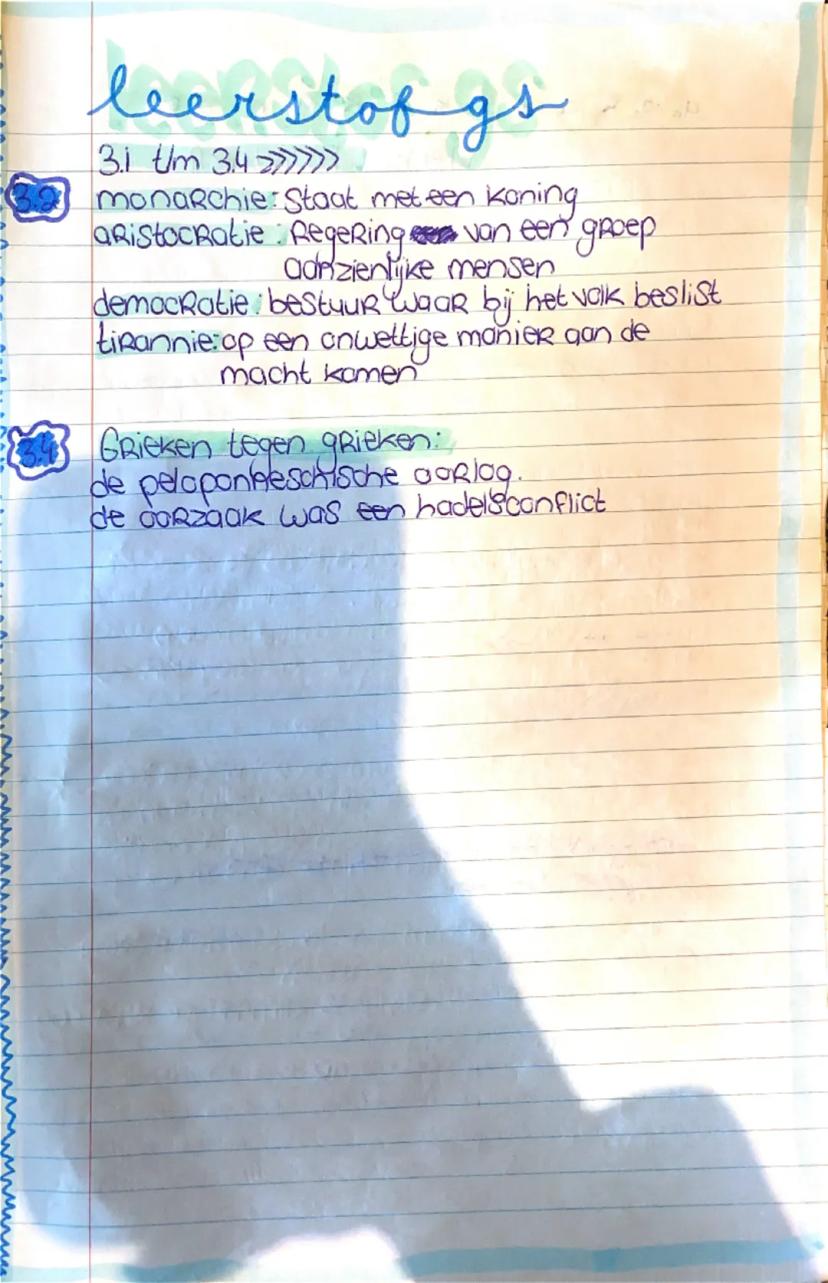 leerstof gs
3.1 t/m 3.4 >>>>>>
3.2 monarchie: Staat met een koning
aristocratie: Regering van een groep
aanzienlijke mensen
democratie: bestuur waar bij het volk beslist
tirannie: op een onwettige manier aan de
macht komen
3.4 Grieken tegen grieken:
de peloponneschische oorlog.
de oorzaak was een hadelsconflict